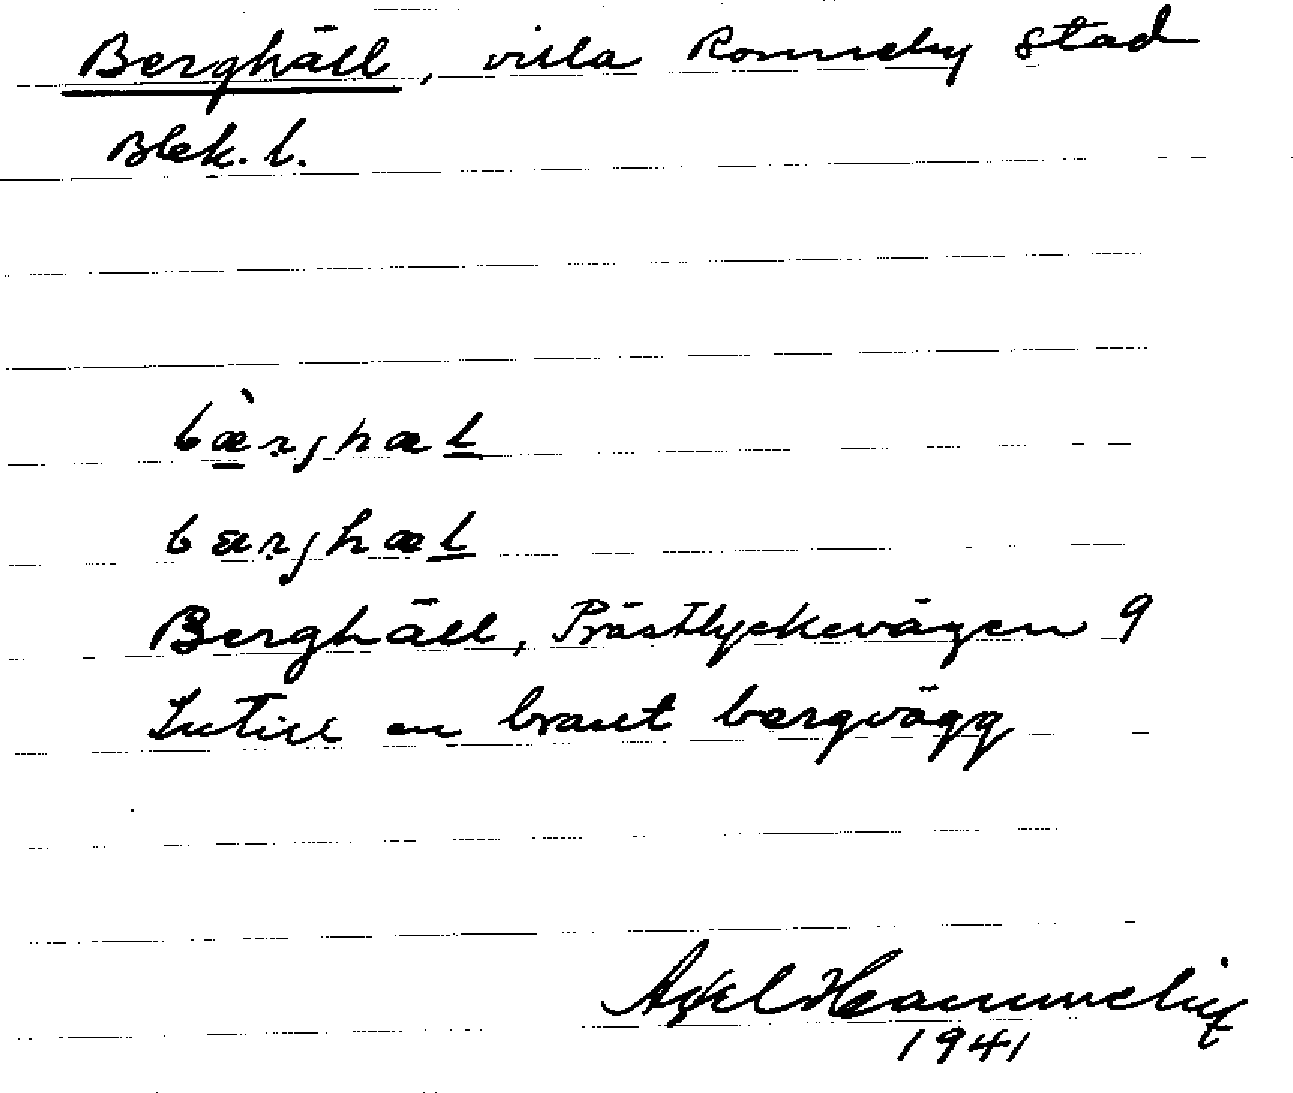 Berghäll, villa Ronneby stad
Blek. l.
bæ̀rjhæl
bærjhæl
Berghäll, Prästlyckevägen 9
Intill en brant bergvägg
Axel
1941